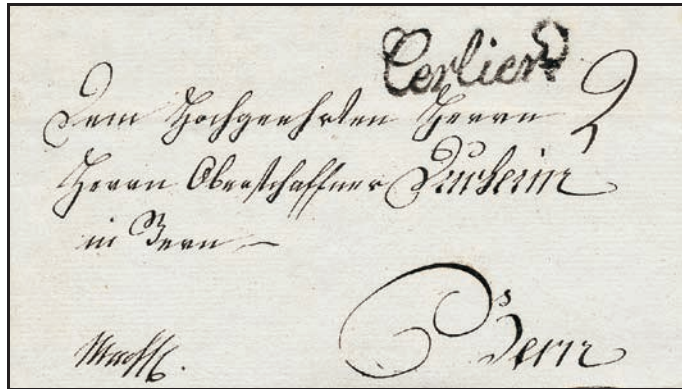 Cerlier
Dem Hochgeehrten Herrn
Herrn Oberschaffner Durheim
in Bern
Bern